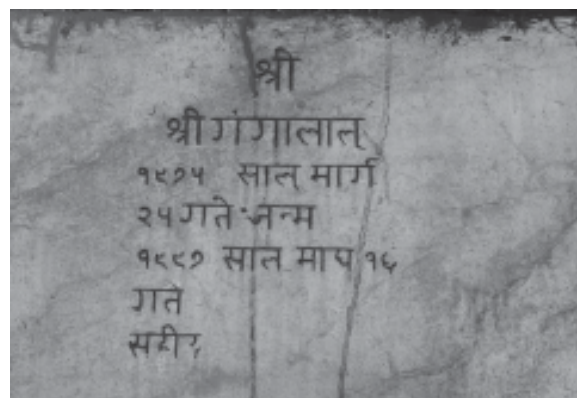 श्री
श्री गंगालाल्
१९७५ साल् मार्ग
२५ गते जन्म
१९९७ साल माघ १६
गते
सहीद